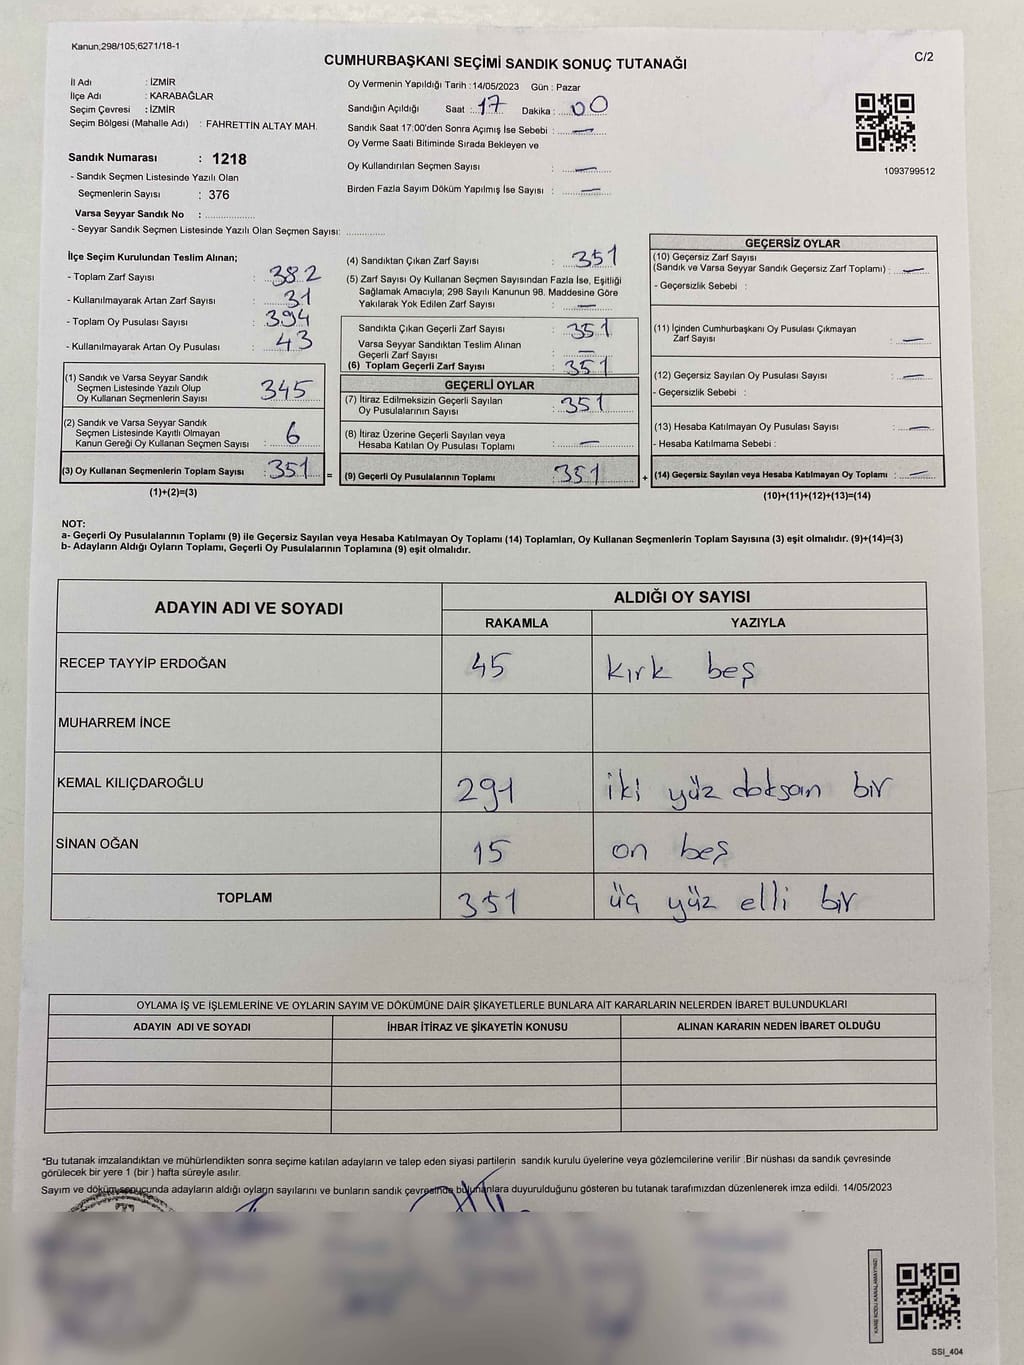 Kanun;298/105;6271/18-1
C/2
CUMHURBAŞKANI SEÇİMİ SANDIK SONUÇ TUTANAĞI
İl Adı : İZMİR
İlçe Adı : KARABAĞLAR
Seçim Çevresi : İZMİR
Seçim Bölgesi (Mahalle Adı) : FAHRETTİN ALTAY MAH.
Sandık Numarası : 1218
- Sandık Seçmen Listesinde Yazılı Olan
Seçmenlerin Sayısı : 376
Varsa Seyyar Sandık No :
- Seyyar Sandık Seçmen Listesinde Yazılı Olan Seçmen Sayısı:
Oy Vermenin Yapıldığı Tarih : 14/05/2023 Gün : Pazar
Sandığın Açıldığı Saat : 17 Dakika : 00
Sandık Saat 17:00'den Sonra Açımış İse Sebebi : —
Oy Verme Saati Bitiminde Sırada Bekleyen ve
Oy Kullandırılan Seçmen Sayısı : —
Birden Fazla Sayım Döküm Yapılmış İse Sayısı : —
1093799512
İlçe Seçim Kurulundan Teslim Alınan;
- Toplam Zarf Sayısı : 382
- Kullanılmayarak Artan Zarf Sayısı : 31
- Toplam Oy Pusulası Sayısı : 394
- Kullanılmayarak Artan Oy Pusulası : 43
(1) Sandık ve Varsa Seyyar Sandık
Seçmen Listesinde Yazılı Olup
Oy Kullanan Seçmenlerin Sayısı : 345
(2) Sandık ve Varsa Seyyar Sandık
Seçmen Listesinde Kayıtlı Olmayan
Kanun Gereği Oy Kullanan Seçmen Sayısı : 6
(3) Oy Kullanan Seçmenlerin Toplam Sayısı : 351 =
(1)+(2)=(3)
(4) Sandıktan Çıkan Zarf Sayısı : 351
(5) Zarf Sayısı Oy Kullanan Seçmen Sayısından Fazla İse, Eşitliği
Sağlamak Amacıyla; 298 Sayılı Kanunun 98. Maddesine Göre
Yakılarak Yok Edilen Zarf Sayısı : —
Sandıkta Çıkan Geçerli Zarf Sayısı : 351
Varsa Seyyar Sandıktan Teslim Alınan
Geçerli Zarf Sayısı : —
(6) Toplam Geçerli Zarf Sayısı : 351
GEÇERLİ OYLAR
(7) İtiraz Edilmeksizin Geçerli Sayılan
Oy Pusulalarının Sayısı : 351
(8) İtiraz Üzerine Geçerli Sayılan veya
Hesaba Katılan Oy Pusulası Toplamı : —
(9) Geçerli Oy Pusulalarının Toplamı : 351 +
GEÇERSİZ OYLAR
(10) Geçersiz Zarf Sayısı
(Sandık ve Varsa Seyyar Sandık Geçersiz Zarf Toplamı) : —
- Geçersizlik Sebebi :
(11) İçinden Cumhurbaşkanı Oy Pusulası Çıkmayan
Zarf Sayısı : —
(12) Geçersiz Sayılan Oy Pusulası Sayısı : —
- Geçersizlik Sebebi :
(13) Hesaba Katılmayan Oy Pusulası Sayısı : —
- Hesaba Katılmama Sebebi :
(14) Geçersiz Sayılan veya Hesaba Katılmayan Oy Toplamı : —
(10)+(11)+(12)+(13)=(14)
NOT:
a- Geçerli Oy Pusulalarının Toplamı (9) ile Geçersiz Sayılan veya Hesaba Katılmayan Oy Toplamı (14) Toplamları, Oy Kullanan Seçmenlerin Toplam Sayısına (3) eşit olmalıdır. (9)+(14)=(3)
b- Adayların Aldığı Oyların Toplamı, Geçerli Oy Pusulalarının Toplamına (9) eşit olmalıdır.
ADAYIN ADI VE SOYADI ALDIĞI OY SAYISI
RAKAMLA YAZIYLA
RECEP TAYYİP ERDOĞAN 45 kırk beş
MUHARREM İNCE
KEMAL KILIÇDAROĞLU 291 iki yüz doksan bir
SİNAN OĞAN 15 on beş
TOPLAM 351 üç yüz elli bir
OYLAMA İŞ VE İŞLEMLERİNE VE OYLARIN SAYIM VE DÖKÜMÜNE DAİR ŞİKAYETLERLE BUNLARA AİT KARARLARIN NELERDEN İBARET BULUNDUKLARI
ADAYIN ADI VE SOYADI İHBAR İTİRAZ VE ŞİKAYETİN KONUSU ALINAN KARARIN NEDEN İBARET OLDUĞU
*Bu tutanak imzalandıktan ve mühürlendikten sonra seçime katılan adayların ve talep eden siyasi partilerin sandık kurulu üyelerine veya gözlemcilerine verilir .Bir nüshası da sandık çevresinde
görülecek bir yere 1 (bir ) hafta süreyle asılır.
Sayım ve döküm sonucunda adayların aldığı oyların sayılarını ve bunların sandık çevresinde bulunanlara duyurulduğunu gösteren bu tutanak tarafımızdan düzenlenerek imza edildi. 14/05/2023
KARE KODU KARALAMAYINIZ!
SSİ_404